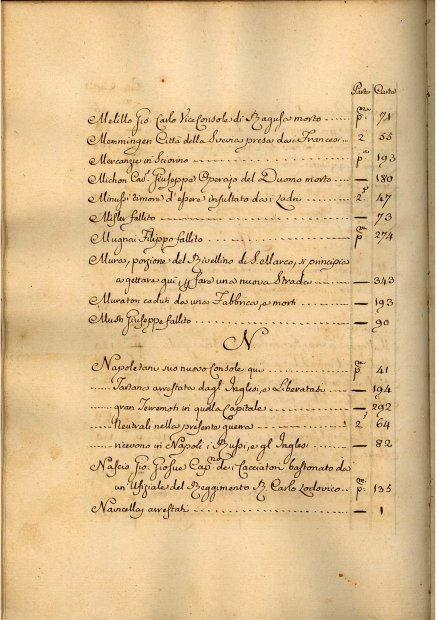 Parte Carta
Melillo Gio: Carlo Vice Console di Ragusa morto p.ma 71
Memmingen Città della Svevia presa dai Francesi 2 55
Mercanzie in p.a 193
Michon Cav.r Giuseppe Operajo del Duomo morto — 180
Minussi timore d'essere insultato dai Ladri 2 47
Misler fallito — 73
Mugnai Filippo fallito p. 274
Mura, porzione del Rivellino di S. Marco, si principia
a gettare qui, p fare una nuova Strada — 343
Muratori caduti da una Fabbrica, e morti — 193
Giuseppe fallito — 90
N
Napoletani suo nuovo Console qui p. 41
Tartane arrestate dagl' Inglesi, e Liberatasi — 194
gran Terremoti in quella Capitale — 292
Neutrali nella presente guerra 2 64
ricevono in Napoli i Russi, e gl' Inglesi — 82
Nascio Gio: Giosue Cap.no dei Cacciatori bastonato da
un Ufiziale del Reggimento R. Carlo Lodovico p. 135
Navicellaj arrestati — 1